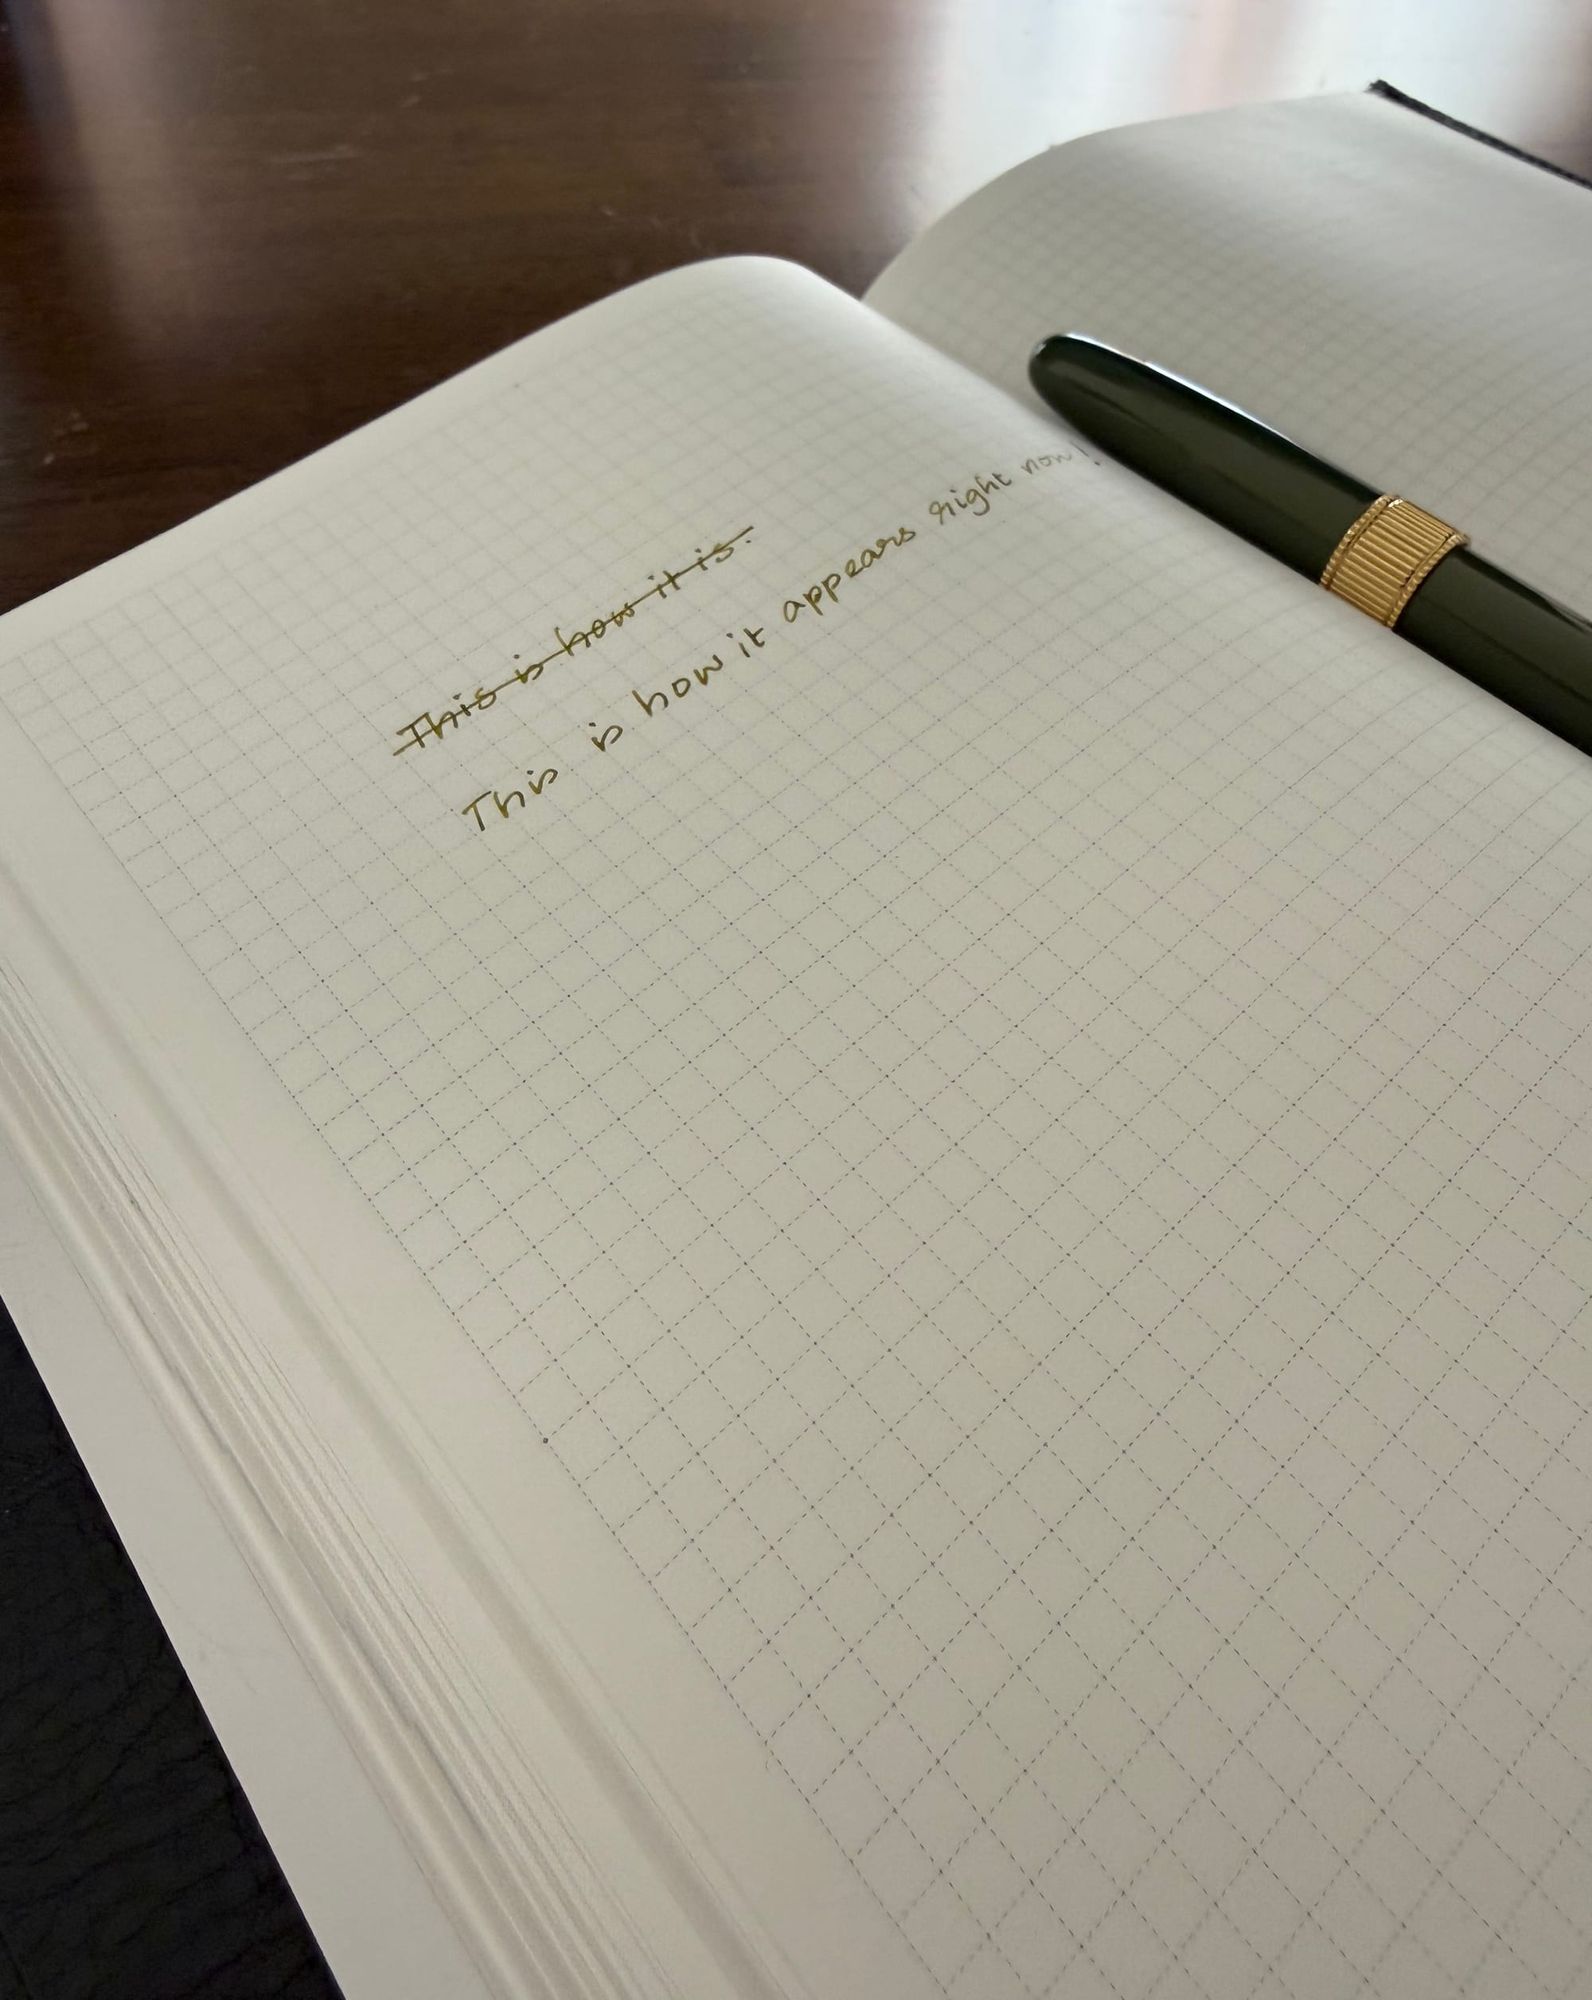 This is how it is.
This is how it appears right now!